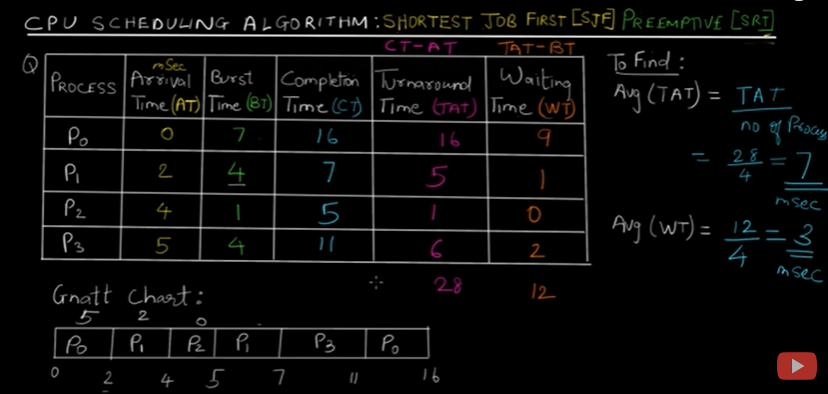 CPU SCHEDULING ALGORITHM: SHORTEST JOB FIRST [SJF] PREEMPTIVE [SRT]
CT-AT TAT-BT
Q
PROCESS mSec Arrival Time (AT) Burst Time (BT) Completion Time (CT) Turnaround Time (TAT) Waiting Time (WT)
P0 0 7 16 16 9
P1 2 4 7 5 1
P2 4 1 5 1 0
P3 5 4 11 6 2
28 12
To Find:
Avg (TAT) = TAT / no of Process
= 28/4 = 7 msec
Avg (WT) = 12/4 = 3 msec
Gnatt Chart:
5 2 0
P0 P1 P2 P1 P3 P0
0 2 4 5 7 11 16